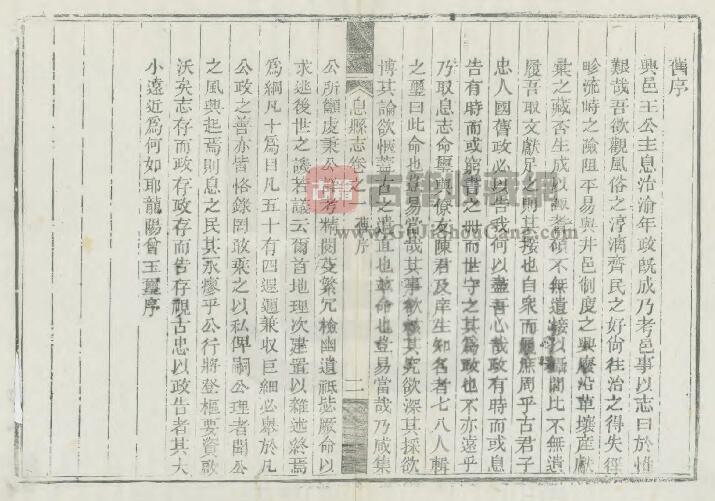 舊序
興邑王公主息治渝年政旣成乃考邑事以志曰於惟
艱哉吾欲觀風俗之淳漓齊民之好尚往治之得失徑
畛流峙之險阻平易與井邑制度之興廢沿革壤産獻
彙之藏否生成以
不無遺
比不無遺
履吾取文獻足之則其
也自衆而
庶周乎古君子
忠人國舊政必以告我何以盡吾心哉政有時而或息
告有時而或窮
之
而世守之其爲政也不亦遠乎
乃取息志命璽與僚友陳君及庠生知名者七八人輯
之璽曰此命也豈易當哉其事欲
其究欲深其採欲
博其論欲
蓋古之遺直也
命也豈易當哉乃咸集
息縣志卷之
舊序
二
公所顧處秉公
考精閱芟繁冗檢幽遺祇毖厥命以
求逃後世之譏若議云爾首地理次建置以雜述終焉
爲綱凡十爲目凡五十有四遐邇兼收巨細必舉於凡
公政之善亦皆恪錄罔敢柔之以私俾嗣公理者聞公
之風興起焉則息之民其永瘳乎公行將登樞要資啟
沃矣志存而政存政存而告存視古忠以政告者其大
小遠近爲何如耶龍陽曾玉璽序
古籍
www.GuJiShouCang.com